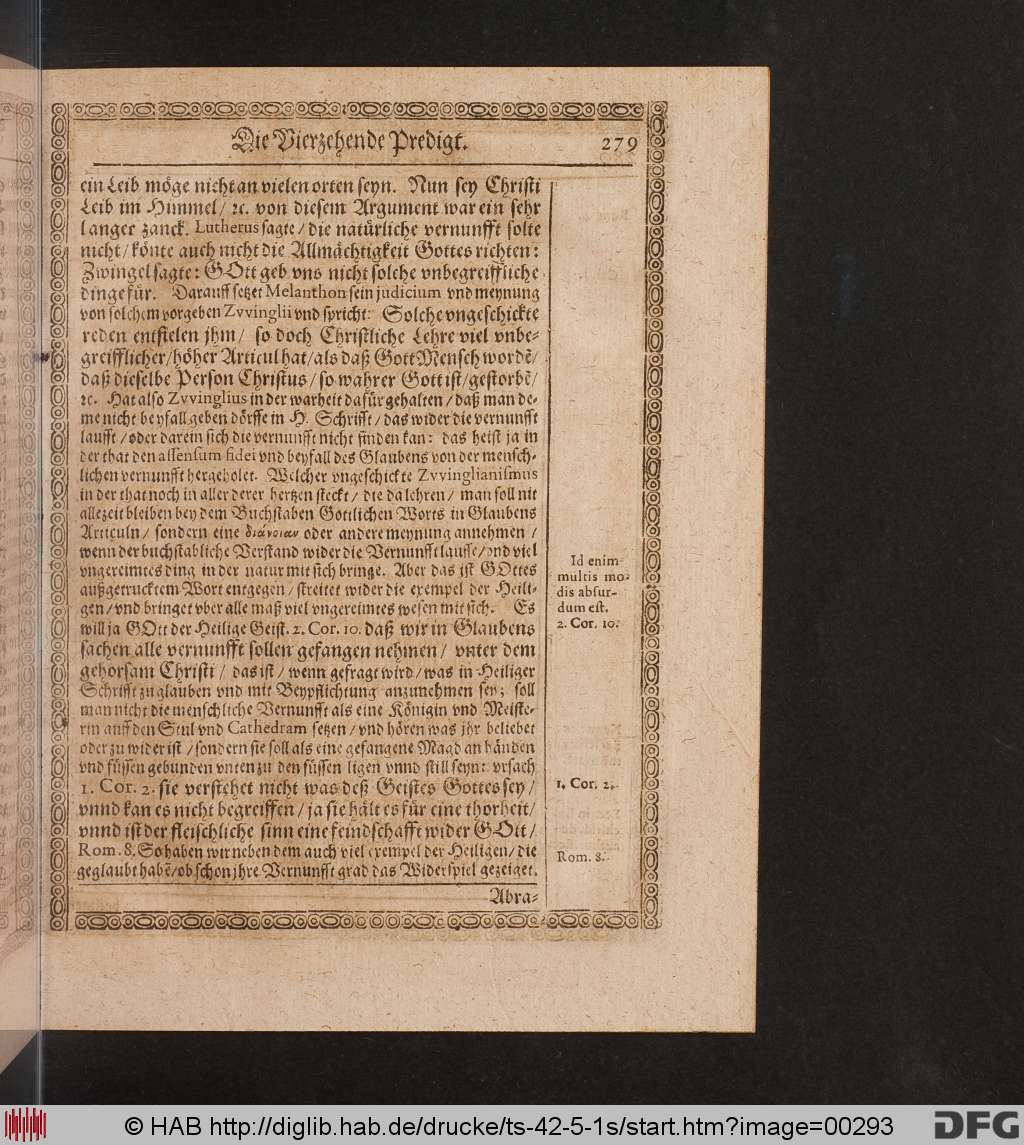 Die Vierzehende Predigt. 279
ein Leib möge nicht an vielen orten seyn. Nun sey Christi
Leib im Himmel / ꝛc. von diesem Argument war ein sehr
langer zanck. Lutherus sagte / die natürliche vernunfft solte
nicht / könte auch nicht die Allmächtigkeit Gottes richten:
Zwingel sagte: GOtt geb vns nicht solche vnbegreiffliche
dinge für. Darauff setzet Melanthon sein judicium vnd meynung
von solchem vorgeben Zvvinglii vnd spricht: Solche vngeschickte
reden entfielen jhm / so doch Christliche Lehre viel vnbe-
greifflicher / höher Articul hat / als daß Gott Mensch wordẽ /
daß dieselbe Person Christus / so wahrer Gott ist / gestorbẽ /
ꝛc. Hat also Zvvinglius in der warheit dafür gehalten / daß man de-
me nicht beyfall geben dörffe in H. Schrifft / das wider die vernunfft
laufft / oder darein sich die vernunfft nicht finden kan: das heist ja in
der that den assensum fidei vnd beyfall des Glaubens von der mensch-
lichen vernunfft hergeholet. Welcher vngeschickte Zvvinglianismus
in der that noch in aller derer hertzen steckt / die da lehren / man soll nit
allezeit bleiben bey dem Buchstaben Göttlichen Worts in Glaubens
Articuln / sondern eine διάνοιαν oder andere meynung annehmen /
wenn der buchstabliche Verstand wider die Vernunfft lauffe / vnd viel
vngereimtes ding in der natur mit sich bringe. Aber das ist GOttes
außgetrucktem Wort entgegen / streitet wider die exempel der Heili-
gen / vnd bringet vber alle maß viel vngereimtes wesen mit sich. Es
will ja GOtt der Heilige Geist. 2. Cor. 10. daß wir in Glaubens
sachen alle vernunfft sollen gefangen nehmen / vnter dem
gehorsam Christi / das ist / wenn gefragt wird / was in Heiliger
Schrifft zu glauben vnd mit Beypflichtung anzunehmen sey; soll
man nicht die menschliche Vernunfft als eine Königin vnd Meiste-
rin auff den Stul vnd Cathedram setzen / vnd hören was jhr beliebet
oder zu wider ist / sondern sie soll als eine gefangene Magd an händen
vnd füssen gebunden vnten zu den füssen ligen vnnd still seyn: vrsach
1. Cor. 2. sie verstehet nicht was deß Geistes Gottes sey /
vnnd kan es nicht begreiffen / ja sie hält es für eine thorheit /
vnnd ist der fleischliche sinn eine feindschafft wider GOtt /
Rom. 8. So haben wir neben dem auch viel exempel der Heiligen / die
geglaubt habẽ / ob schon jhre Vernunfft grad das Widerspiel gezeiget.
Abra-
Id enim
multis mo-
dis absur-
dum est.
2. Cor. 10.
1. Cor. 2.
Rom. 8.
© HAB http://diglib.hab.de/drucke/ts-42-5-1s/start.htm?image=00293
DFG